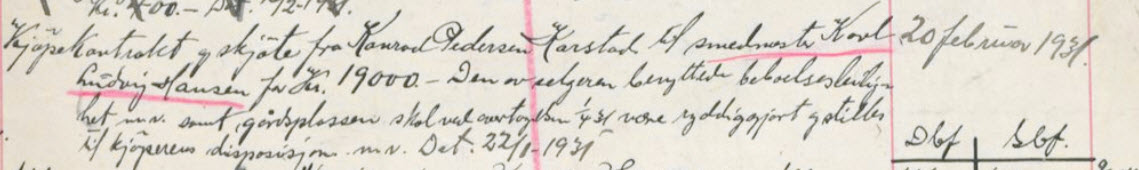 Kr. 400.— Dat. 19/2-1931.
Kjøpekontrakt og skjöte fra Konrad Pedersen Karstad til smedmester Karl 20 februar 1931.
Ludvig Hansen for Kr. 19000.— Den av selgeren benyttede beboelsesleilig-
het m.v. samt gårdsplassen skal ved overtagelsen 1/4 31 være ryddiggjort og stilles
til kjöperens disposisjon m.v. Dat. 22/1-1931
Dbf Gbf.